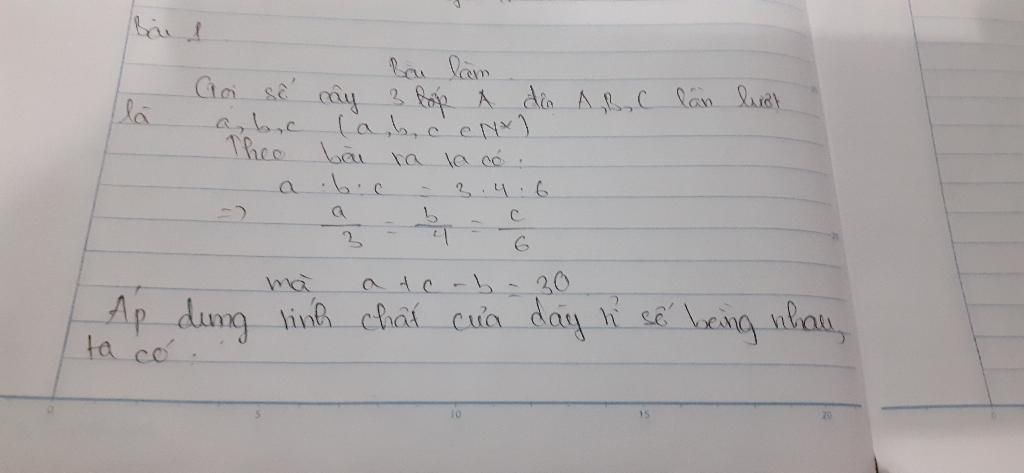 Bài 1
Bài làm
Gọi số cây 3 lớp A đến A, B, C lần lượt
là a, b, c (a, b, c ∈ N*)
Theo bài ra ta có:
a : b : c = 3 : 4 : 6
=> a/3 = b/4 = c/6
mà a + c - b = 30
Áp dụng tính chất của dãy tỉ số bằng nhau,
ta có:
0 5 10 15 20